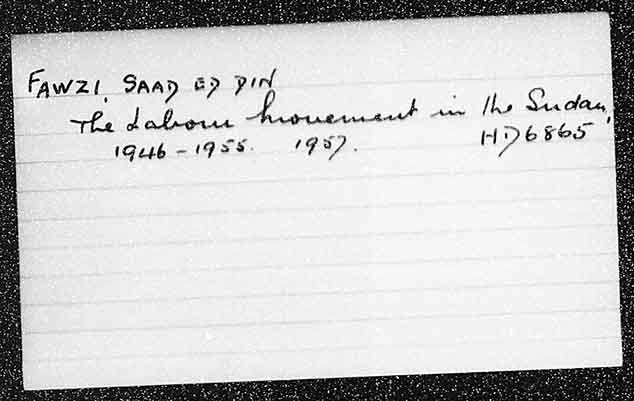 FAWZI, SAAD ED DIN
The Labour Movement in the Sudan,
1946-1955. 1957. HD6865